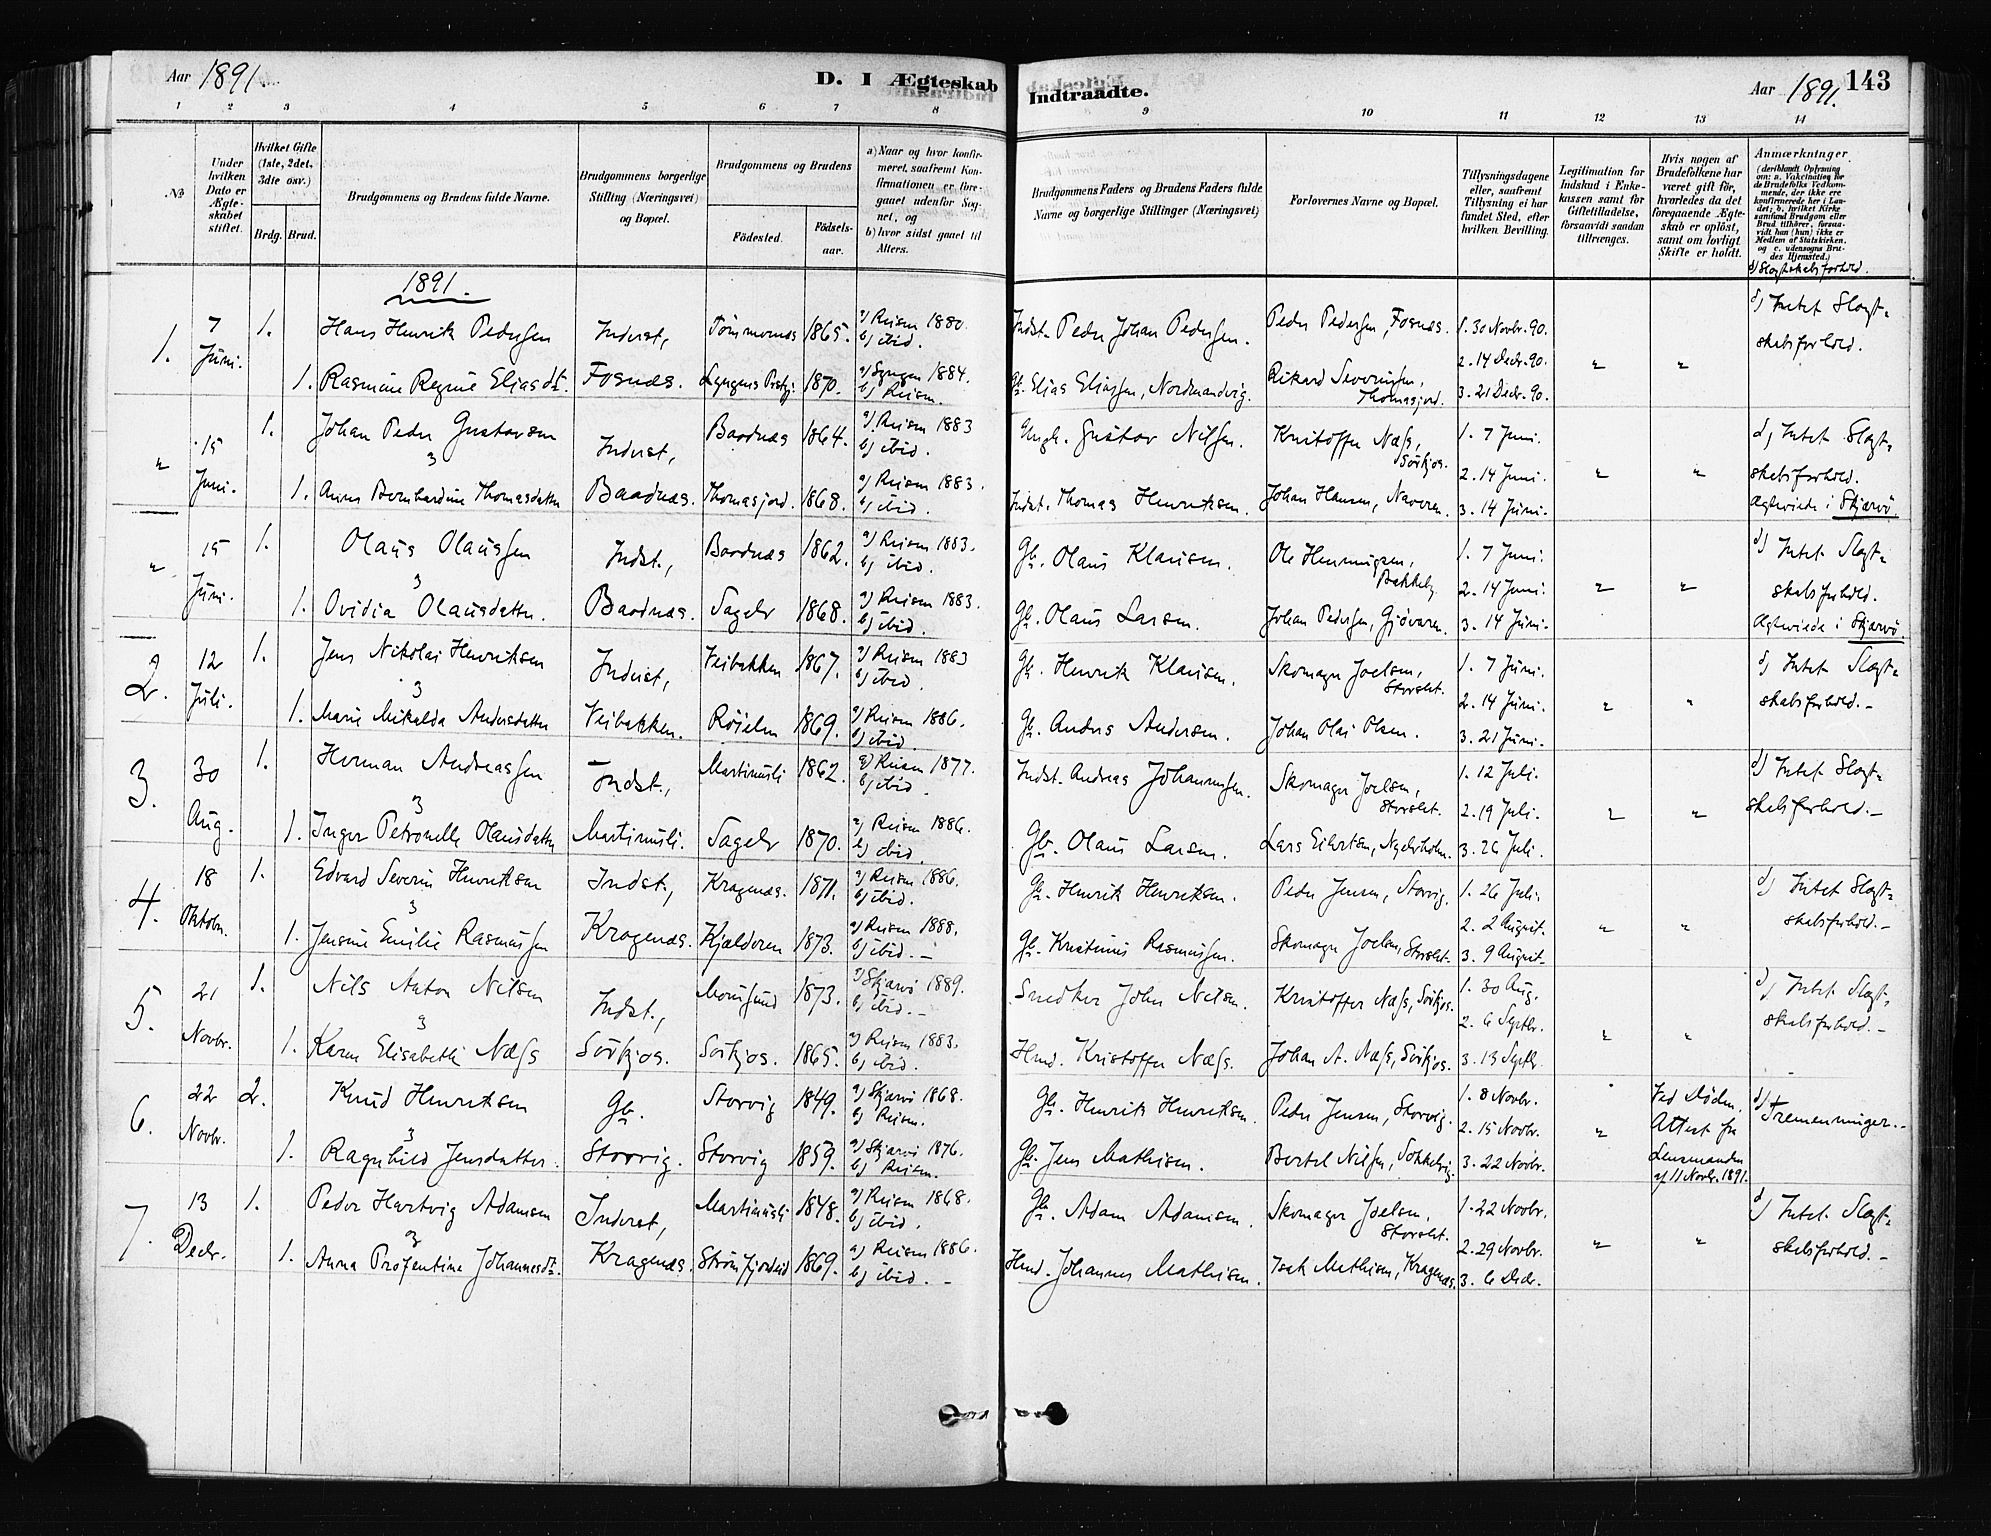 Aar 1891.
D. I Ægteskab
Indtraadte.
Aar 1891. 143
1 2 3 4 5 6 7 8 9 10 11 12 13 14
№
Under hvilken Dato er Ægteskabet stiftet.
Hvilket Gifte (1ste, 2det, 3die osv.)
Brdg. Brud.
Brudgommens og Brudens fulde Navne.
Brudgommens borgerlige Stilling (Næringsvei) og Bopæl.
Brudgommens og Brudens
Fødested.
Fødsels-aar.
a) Naar og hvor konfirmeret, saafremt Konfirmationen er foregaaet udenfor Sognet, og
b) hvor sidst gaaet til Alters.
Brudgommens Faders og Brudens Faders fulde Navne og borgerlige Stillinger (Næringsvei)
Forlovernes Navne og Bopæl.
Tillysningsdagene eller, saafremt Tillysning ei har fundet Sted, efter hvilken Bevilling.
Legitimation for Indskud i Enkekassen samt for Giftetilladelse, forsaavidt saadan tiltrænges.
Hvis nogen af Brudefolkene har været gift før, hvorledes da det foregaaende Ægteskab er opløst, samt om lovligt Skifte er holdt.
Anmærkninger.
(deriblandt Oplysning om: a. Vakcination for de Brudefolks Vedkommende, der ikke ere konfirmerede her i Landet; b. hvilket Kirkesamfund Brudgom eller Brud tilhører, forsaavidt han (hun) ikke er Medlem af Statskirken, og c. udensogns Brudes Hjemsted.)
d) Slægtskabsforhold.
1891.
1. 7 Juni. 1. Hans Henrik Pedersen Inderst, Tømmernes 1865. a) Reisen 1880. b) ibid. Indst. Peder Johan Pedersen. Peder Pedersen, Fosnæs. 1. 30 Novbr. 90. d) Intet Slægt-
1. Rasmine Regine Eliasdt. Fosnæs. Lyngens Prstgj. 1870. a) Lyngen 1884. b) Reisen. Gb. Elias Eliassen, Nordmandvig. Rikard Severinsen, Thomasjord. 2. 14 Decbr. 90. 3. 21 Decbr. 90. " " skabsforhold.
" 15 Juni. 1. Johan Peder Gustavsen Inderst, Baadnæs 1864. a) Reisen 1883 b) ibid. Ungk. Gustav Nilsen. Kristoffer Næss, Sörkjos. 1. 7 Juni. d) Intet Slægt-
1. Anne Bernhardine Thomasdatter Baadnæs. Thomasjord. 1868. a) Reisen 1883. b) ibid. Indst. Thomas Henriksen. Johan Hansen, Navaren. 2. 14 Juni. 3. 14 Juni. " " skabsforhold. Ægteviede i Skjærvö.
" 15 Juni. 1. Olaus Olaussen Indst., Baadnæs 1862. a) Reisen 1883. b) ibid. Gb. Olaus Klausen. Ole Henningsen, Bakkeby 1. 7 Juni. d) Intet Slægt-
1. Ovidia Olausdatter. Baadnæs. Sagelv 1868. a) Reisen 1883. b) ibid. Gb. Olaus Larsen. Johan Pedersen, Gjøvaren. 2. 14 Juni. 3. 14 Juni. " " skabsforhold. Ægteviede i Skjærvö.
2. 12 Juli. 1. Jens Nikolai Henriksen Inderst, Veibakken 1867. a) Reisen 1883 b) ibid. Gb. Henrik Klausen. Skomager Joelsen, Storslet. 1. 7 Juni. d) Intet Slægt-
1. Marie Mikalda Andersdatter Veibakken. Röielen 1869. a) Reisen 1886. b) ibid. Gb. Anders Andersen. Johan Olai Olsen. 2. 14 Juni. 3. 21 Juni. " " skabsforhold.
3. 30 Aug. 1. Herman Andreassen Indst., Martinusli 1862. a) Reisen 1877. b) ibid. Indst. Andreas Johannessen. Skomager Joelsen, Storslet. 1. 12 Juli. d) Intet Slægt-
1. Inger Petronelle Olausdatter Martinusli. Sagelv 1870. a) Reisen 1886. b) ibid. Gb. Olaus Larsen. Lars Eilertsen, 2. 19 Juli. 3. 26 Juli. " " skabsforhold.
4. 18 Oktober. 1. Edvard Severin Henriksen Indst., Kragenæs. 1871. a) Reisen 1886. b) ibid. Gb. Henrik Henriksen. Peder Jensen, Storvig. 1. 26 Juli. d) Intet Slægt-
1. Jensine Emilie Rasmussen Kragenæs. Kjælderen 1873. a) Reisen 1888. b) ibid. Gb. Kristinus Rasmussen. Skomager Joelsen, Storslet. 2. 2 August. 3. 9 August. " " skabsforhold.
5. 21 Novbr. 1. Nils Anton Nilsen Indst., Maursund 1873. a) Skjærvö 1889. b) ibid. Snedker John Nilsen. Kristoffer Næss, Sörkjos. 1. 30 Aug. d) Intet Slægt-
1. Karen Elisabeth Næss Sörkjos. Sörkjos. 1865. a) Reisen 1883. b) ibid. Hmd. Kristoffer Næss. Johan A. Næss, Sörkjos. 2. 6 Septbr. 3. 13 Septbr. " " skabsforhold.
6. 22 Novbr. 2. Knud Henriksen Gb. Storvig 1849. a) Skjærvö 1868. b) Reisen. Gb. Henrik Henriksen. Peder Jensen, Storvig. 1. 8 Novbr. Ved Döden. d) Tremenninger.
1. Ragnhild Jensdatter. Storvig. Storvig 1859. a) Skjærvö 1876. b) Reisen. Gb. Jens Mathisen. Bertel Nilsen, Sokkelvig. 2. 15 Novbr. 3. 22 Novbr. " Attest fra Lensmanden af 11 Novbr. 1891.
7. 13 Decbr. 1. Peder Hartvig Adamsen Inderst, Martinusli 1848. a) Reisen 1868. b) ibid. Gb. Adam Adamsen. Skomager Joelsen, Storslet. 1. 22 Novbr. d) Intet Slægt-
1. Anna Profentine Johannesdt. Kragenæs. Strömfjordeid 1869. a) Reisen 1886. b) ibid. Hmd. Johannes Mathisen. Isak Mathisen, Kragenæs. 2. 29 Novbr. 3. 6 Decbr. " " skabsforhold.